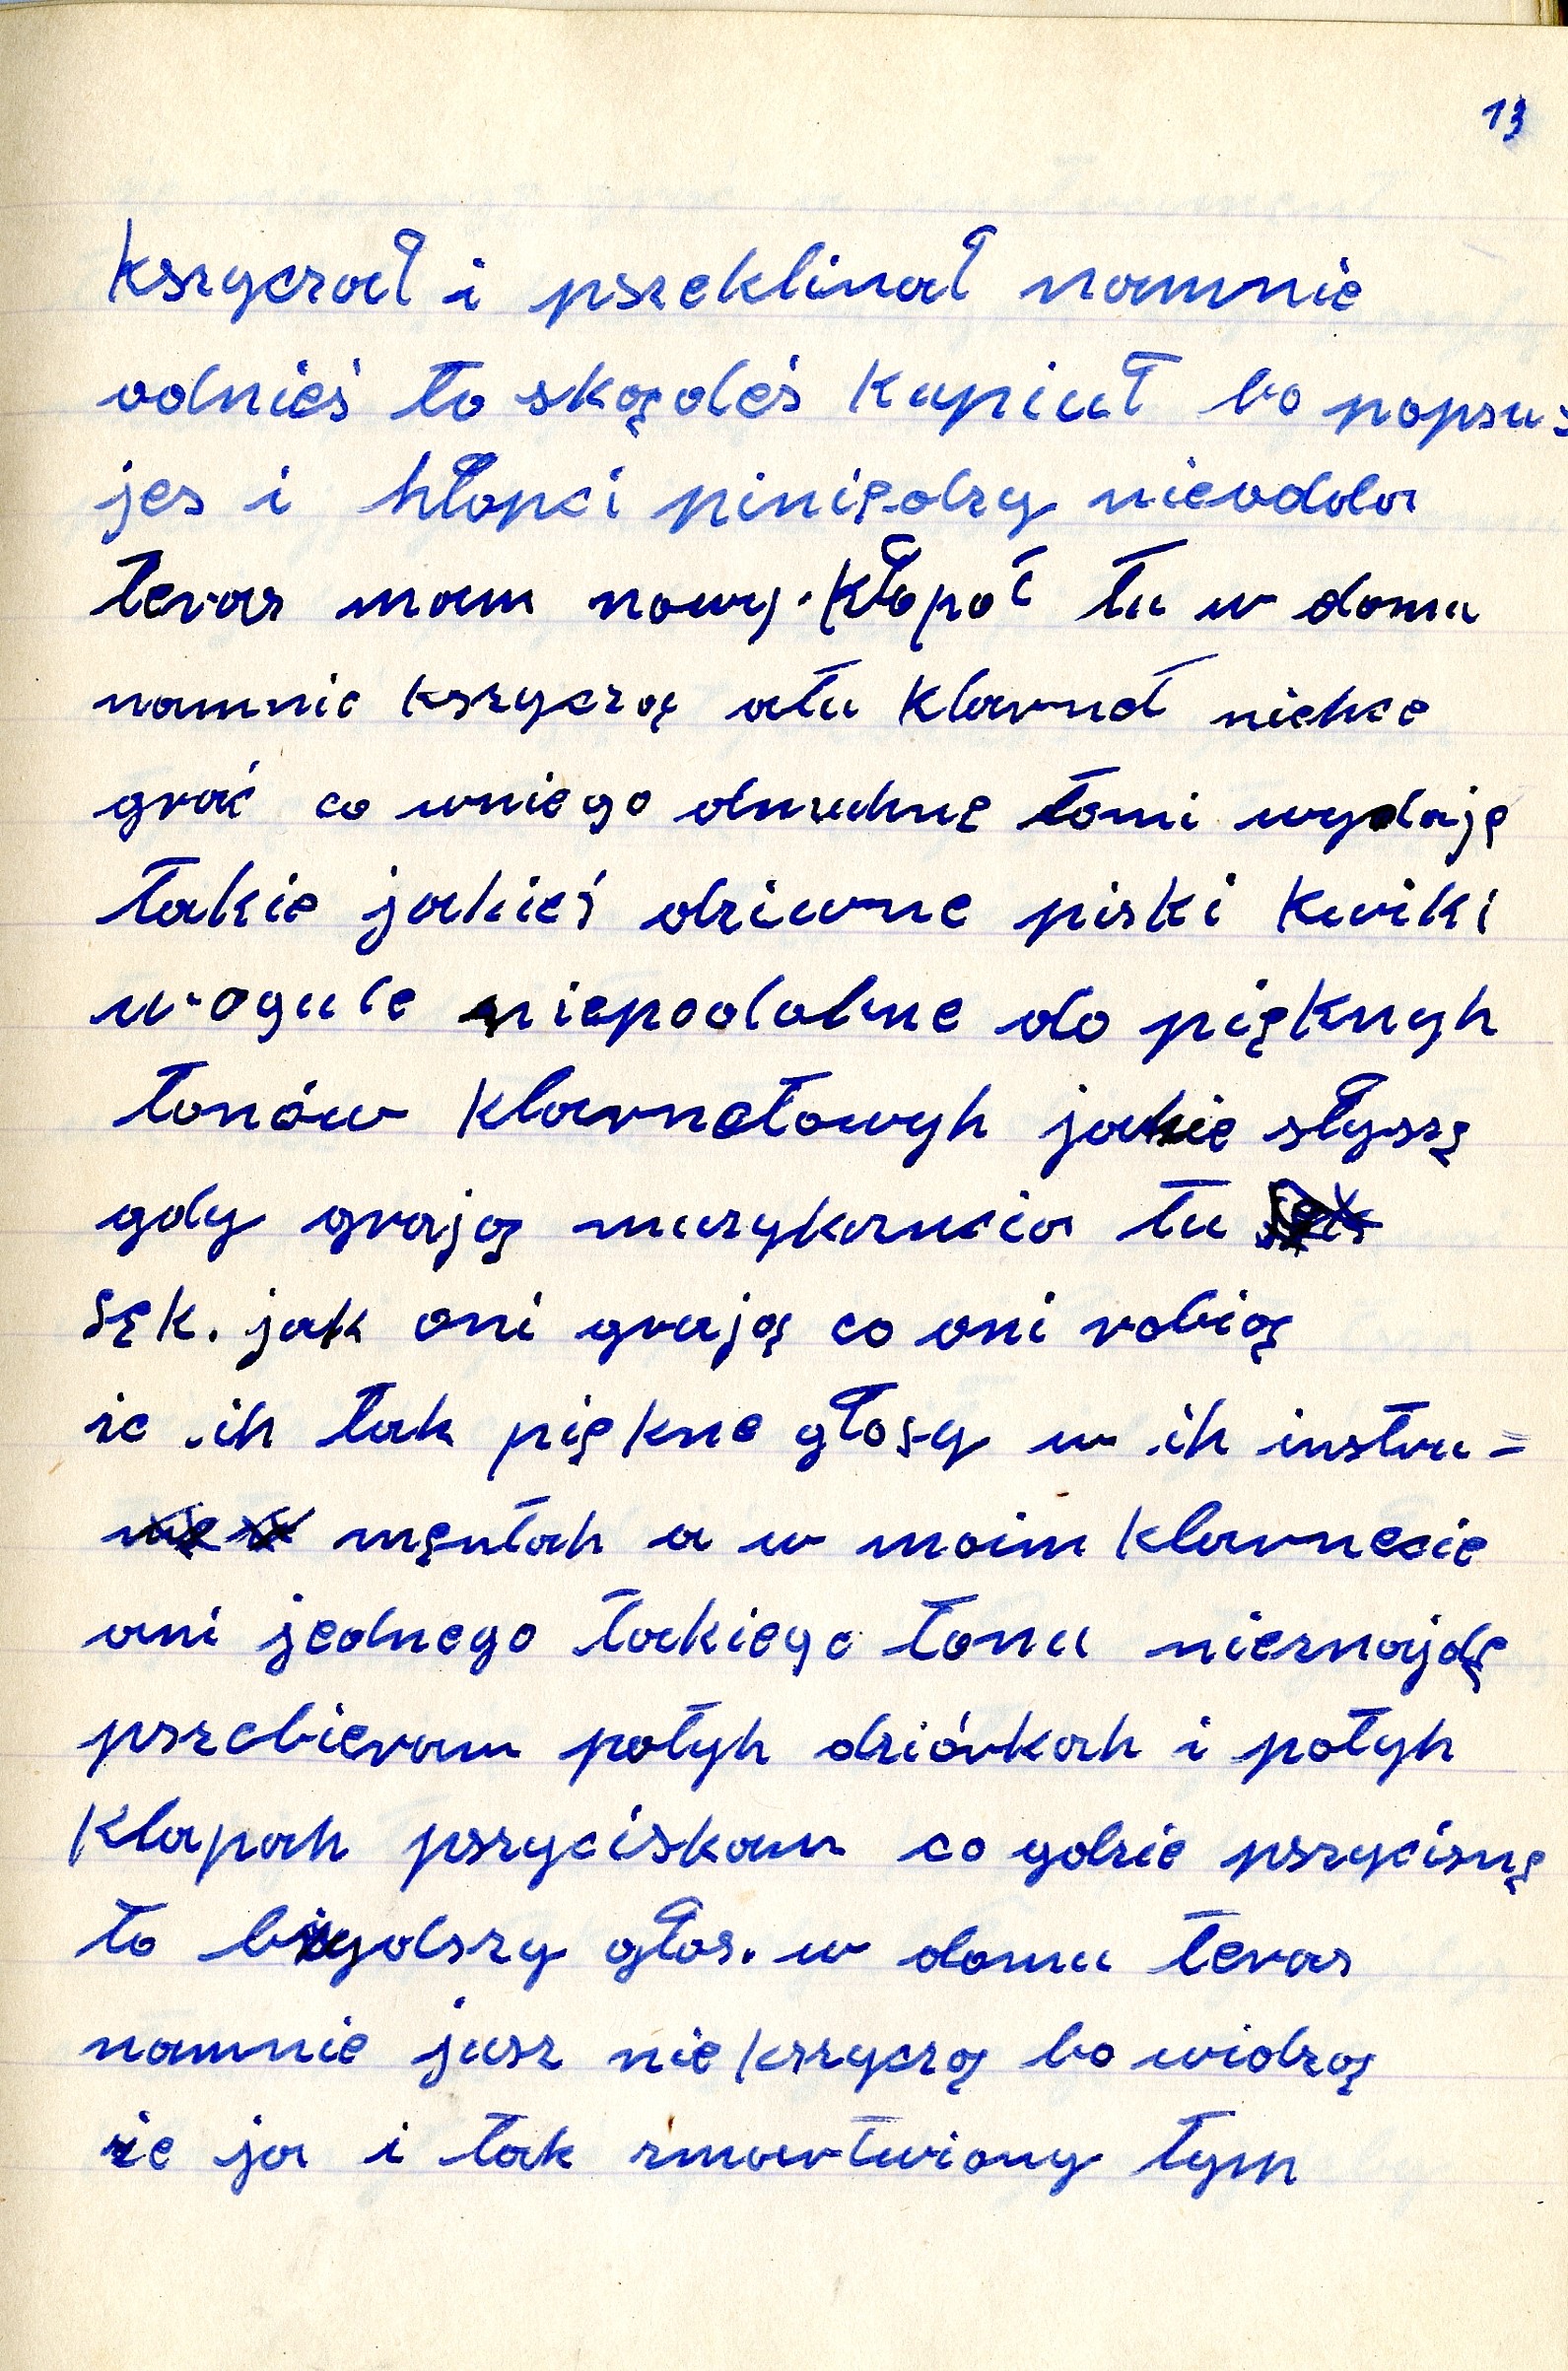 13
kszyczał i pszeklinał namnie
odnieś to skąądeś kupiuł bo popsu
jes i hłopci piniędzy nieodda
teras mam nowy. kłopot tu w domu
namnie kszyczą atu klarnet niehce
grać co wniego dmuhnę tomi wydaję
takie jakieś dziwne piski kwiki
w-ogule niepodobne do pięknyh
tonów klarnetowyh jakie słyszę
gdy grają muzykancia tu
sęk. jak oni grają co oni robią
że ih tak piękne głosy w ih instru=
mętah a w moim klarnecie
ani jednego takiego tonu nieznajdę
pszebieram potyh dziórkah i potyh
klapah pszyciskam co gdzie pszycisnę
to bżydszy głos. w domu teras
namnie jusz nie kszyczą bo widzą
że ja i tak zmartwiony tym